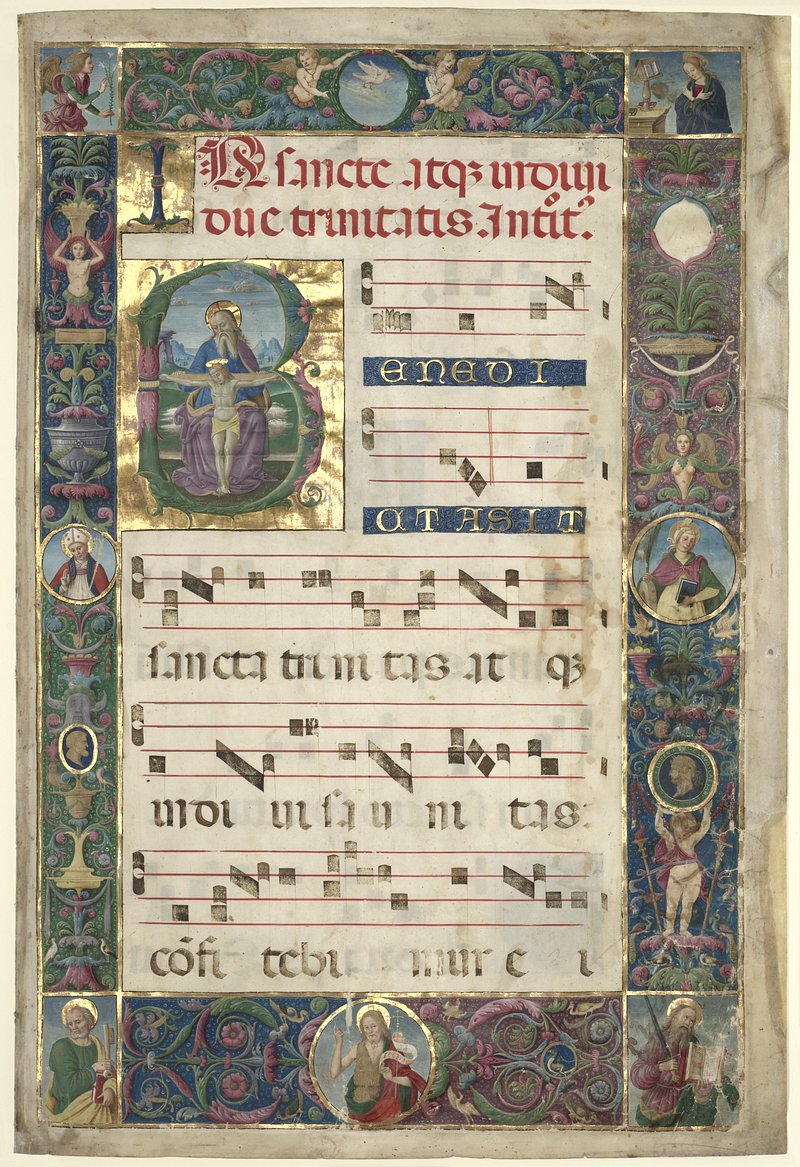 IN sancte atqꝫ indiui
due trinitatis. Intit.
B ENEDI
CTA SIT
sancta trini tas at qꝫ
indi ui sa u ni tas:
cōfi tebi mur e i